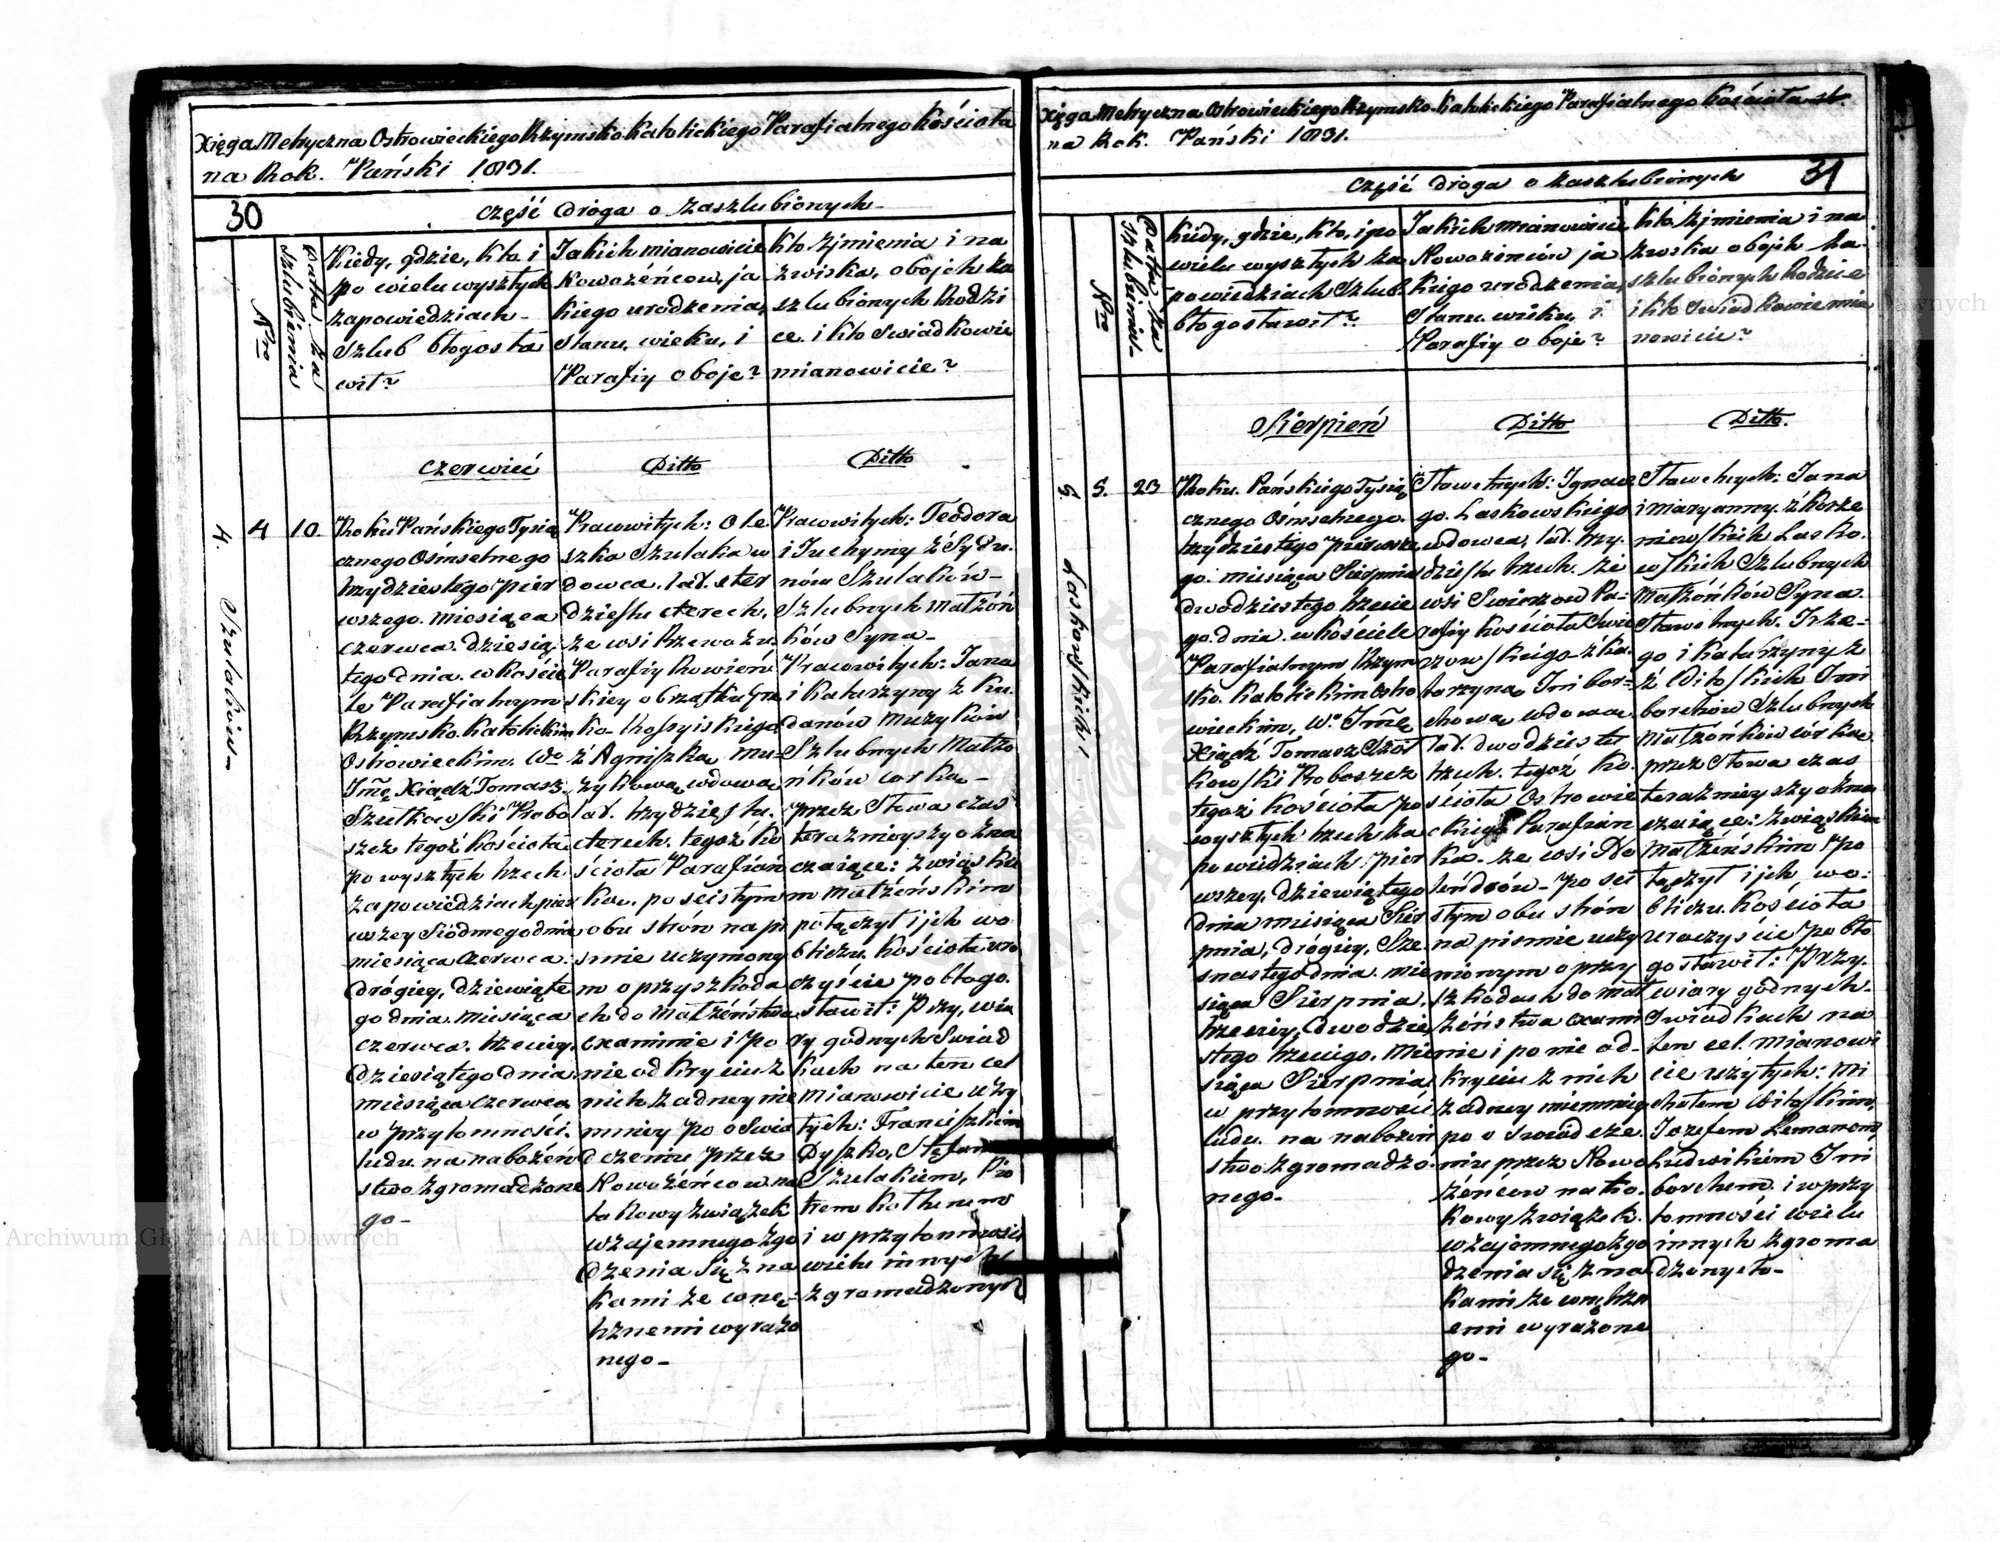 Xięga Metryczna Ostrowieckiego Rzymsko Katolickiego Parafialnego Kościoła
na Rok. Pański 1831.
30
część Droga o Zaszlubionych
Nro
Datta Za
Szlubienia
Kiedy, gdzie, kto i
po wielu wyszłych
zapowiedziach
Szlub błogosła
wił?
Jakich mianowicie
Nowożeńcow, ja
kiego urodzenia,
stanu, wieku, i
Parafiy oboje?
Kto zjmienia i na
zwiska, obojch za
szlubionych Rodzi
ce. i kto Swiadkowie
mianowicie?
czerwieć
Ditto
Ditto
4. Szulaków
4
10.
Roku Pańskiego Tysią
cznego Ośmsetnego
trzydziestego pier
wszego. miesiąca
czerwca. dziesią
tego dnia. w koście
le Parafialnym
Rzymsko. Katolickim
Ostrowieckim. Wo
Jmę Xiądź Tomasz.
Szutkowski Probo
szcz tegoż kościoła
po wyszłych trzech
zapowiedziach pier
wszey Siódmego dnia
miesiąca czerwca.
drógiey, dziewiąte
go dnia. miesiąca
czerwca. trzeciey.
Dziesiątego dnia.
miesiąca czerwca
w przytomności.
ludu. na nabożeń
stwo zgromadzone
go-
Pracowitych: Ole
szka Szulaka w
dowca. lat. czter
dziestu czterech,
ze wsi
Parafiy
skiey obrządku Gre
ko- Rossyiskiego
ź Agniszką Mu
zykową wdową
lat. trzydziestu.
czterech. tegoż Ko
ścioła Parafian
ka. po scistym
obu strón na pi
smie uczymiony
m o przyszkoda
ch do Małżeństwa
examinie i po
nie odkryciu z
nich żadney nie
mniey po oświa
dczeniu przez
Nowożeńcow na
ta Nowy związek
wzajemnego zgo
dzenia się zna
kami ze wnę-
trznemi wyrażo
nego-
Pracowitych: Teodora
i Juchymy ź Sydu.
nów Szulaków-
Szlubnych małżón
ków Syna-
Pracowitych: Jana
i Katarzyny z Ku.
danów Muzyków
Szlubnych Małżo
ńków corka-
przez Słowa czas
teraznieyszy ozna
czaiące: związku
m Małżeńskim
połączył i jch wo
bliczu. kościoła uro
czyście pobłogo.
sławił: Przy, wia
ry godnych Swiad
kach na ten cel
mianowicie uży
tych: Franciszkiem
Dyszko, Stefan
Szulakiem, Pio
trem Kothunem
i w przytomności
wielu innych
zgromadzonych
Xięga Metryczna Ostrowieckiego Rzymsko Katolickiego Parafialnego Kościoła st.
na Rok. Pański 1831.
część Droga o Zaszlubionych
31
Nro
Datta Za
Szlubienia.
Kiedy, gdzie, kto, i po
wielu wyszłych za
powiedziach Szlub
błogosławił?
Jakich mianowicie
Nowożeńców ja
kiego urodzenia,
Stanu. wieku, i
Parafiy oboje?
Kto zjmienia i na
zwiska obojch za.
szlubionych Rodzice
i kto Swiadkowie mia
nowicie?
Sierpień
Ditto
Ditto.
5. Laskowskich
5.
23
Roku. Pańskiego Tysią
cznego Ośmsetnego.
trzydziestego pierwsze
go. miesiąca Sierpnia
dwodziestego trzecie
go. dnia. w kościele
Parafialnym Rzym
sko. Katolickim Ostro
wieckim, Wo Jmę
Xiądź Tomasz Szut
kowski Proboszcz
tegoż kościoła po
wyszłych trzech za
powiedziach: pier
wszey, dziewiątego
dnia miesiąca Sier
pnia, drógiey, Sze.
snastego dnia. mie
siąca Sierpnia.
trzeciey, dwodzie
stego trzeciego. mie
siąca Sierpnia.
w przytomności
ludu. na nabożeń
stwo zgromadzo.
nego-
Sławetnych: Jgnace
go. Laskowskiego
wdowca, lat. trzy.
dziestu trzech. ze
wsi Swierzow Pa-
rafiy kościoła Swie
rzowskiego ź Ka.
tarzyną Jmbor-
chową wdową
lat. dwodziestu
trzech. tegoż Ko.
ścioła Ostrowie
ckiego Parafian
ką. ze wsi Ho
lendrów- po sci
stym obu strón
na pismie uczy
nionym o przy
szkodach do mał
żeństwa exami
nie i po nie od-
kryciu z nich
żadney niemniey
po oświadcze.
niu przez Nowo
żeńcow na to.
Nowy związek.
wzajemnego zgo
dzenia się zna-
kami ze wnętrzn
emi wyrażone
go-
Sławetnych: Jana
i maryanny. ź Korze
niowskich Lasko.
wskich Szlubnych
małżónków Syna.
Sławetnych.
go i Katarzyny z
ź Witoskich Jm
borchów Szlubnych
małżónków córka.
przez Słowa czas
teraznieyszy ozna
czaiące: związkiem
małżeńskim po
łączył i jch, wo.
bliczu. kościoła
uroczyście pobło
gosławił: Przy.
wiary godnych-
Swiadkach na
ten cel. mianowi
cie użytych: Mi
chałem Witoskim,
Jozefem Lemanem,
Ludwikiem Jm
borchem. i w przy
tomności wielu
innych zgroma
dzonych-
Archiwum Główne Akt Dawnych
Archiwum Główne Akt Dawnych